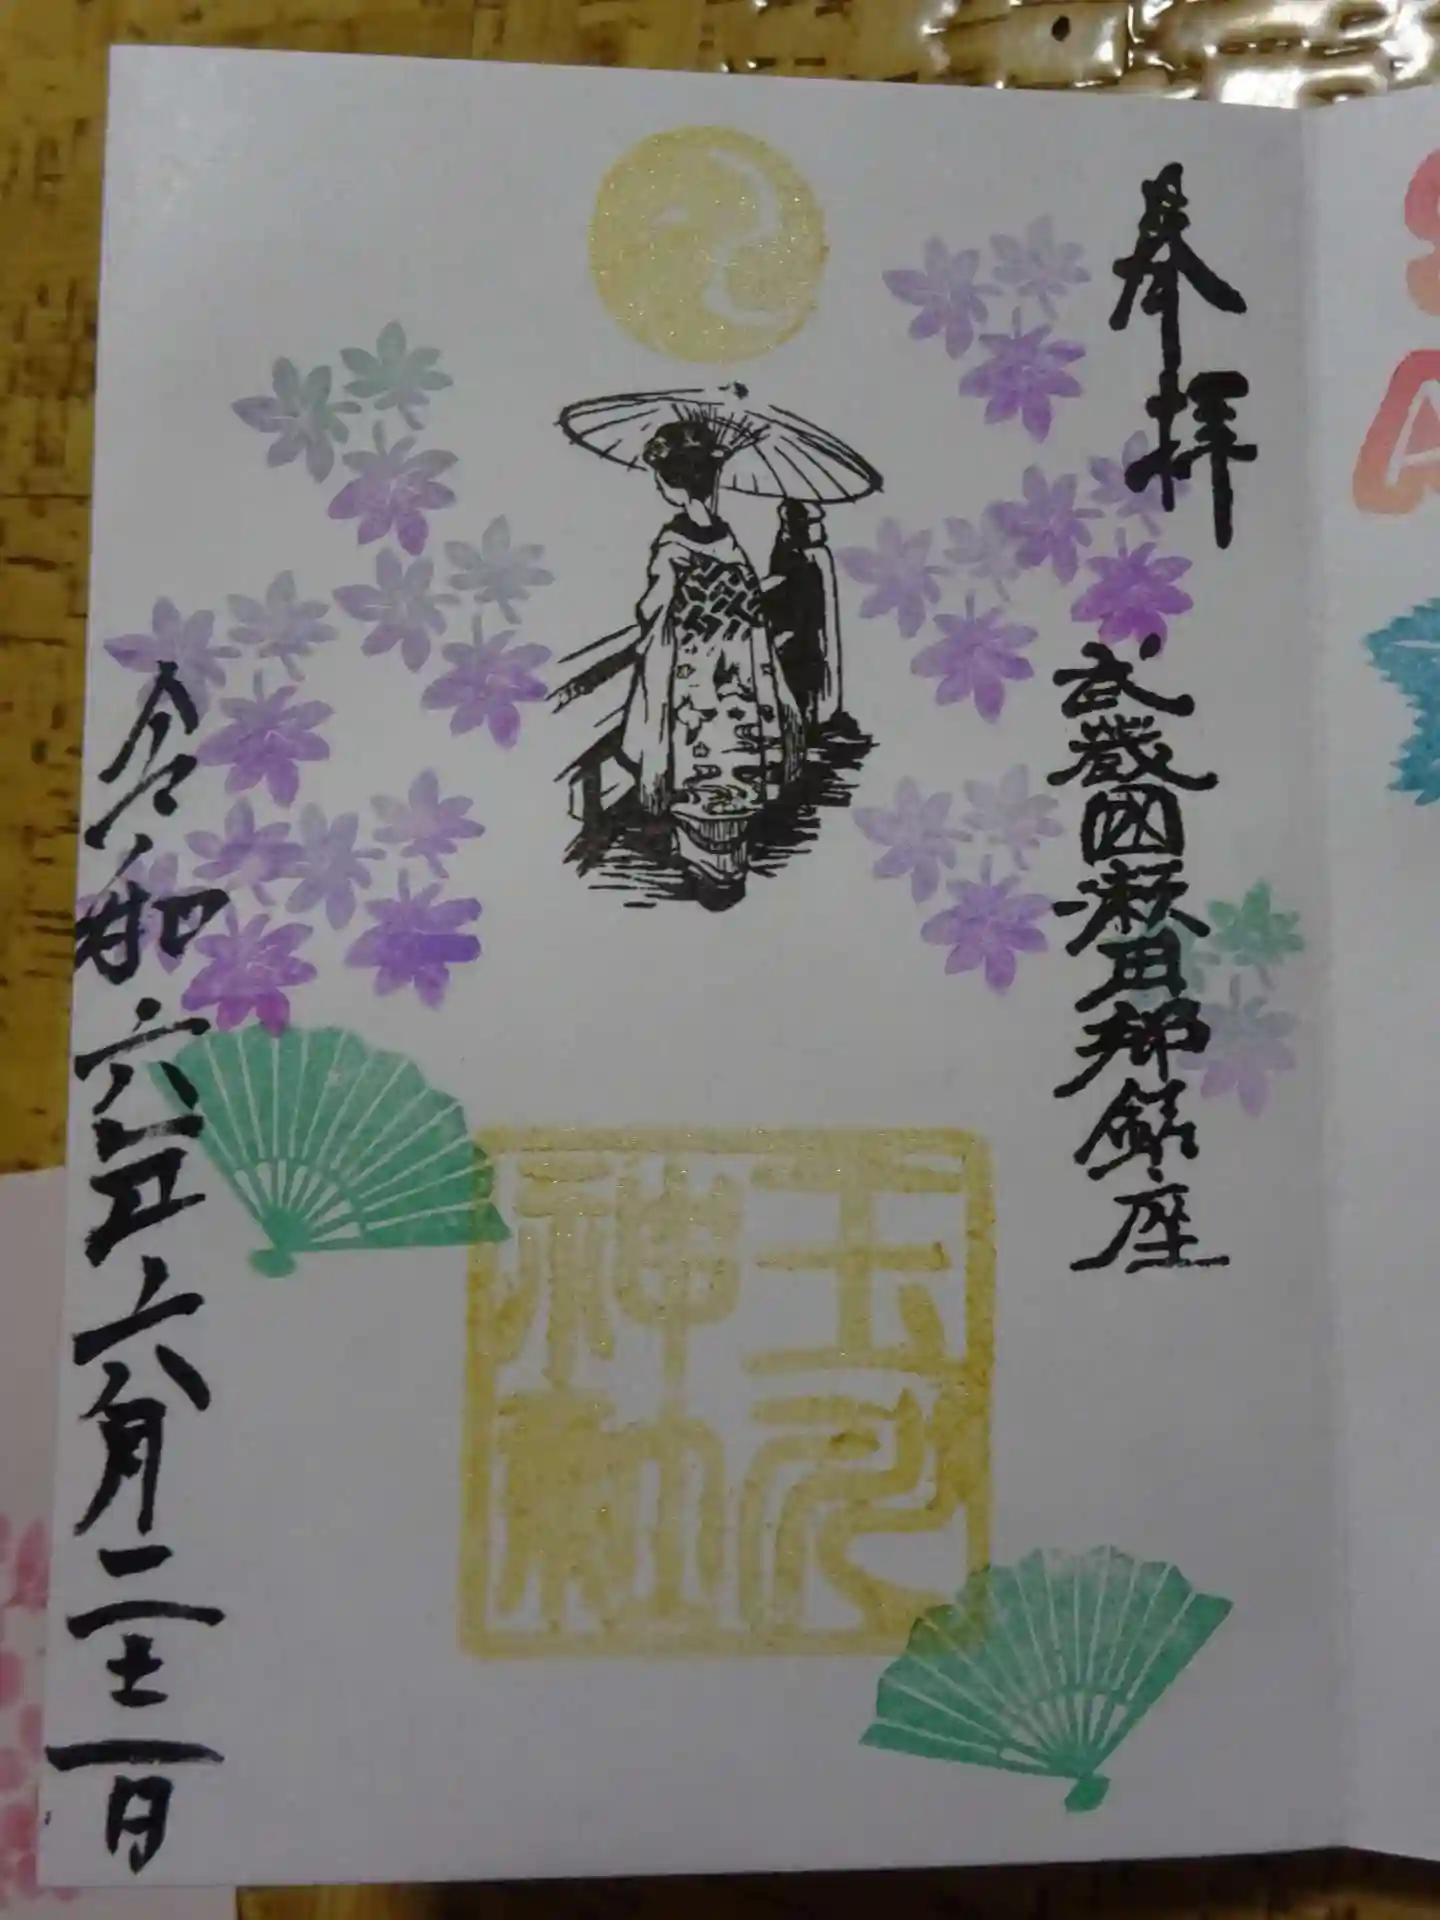 奉拝
武蔵國瀬田郷鎮座
玉川
神社
令和六年六月二十二日